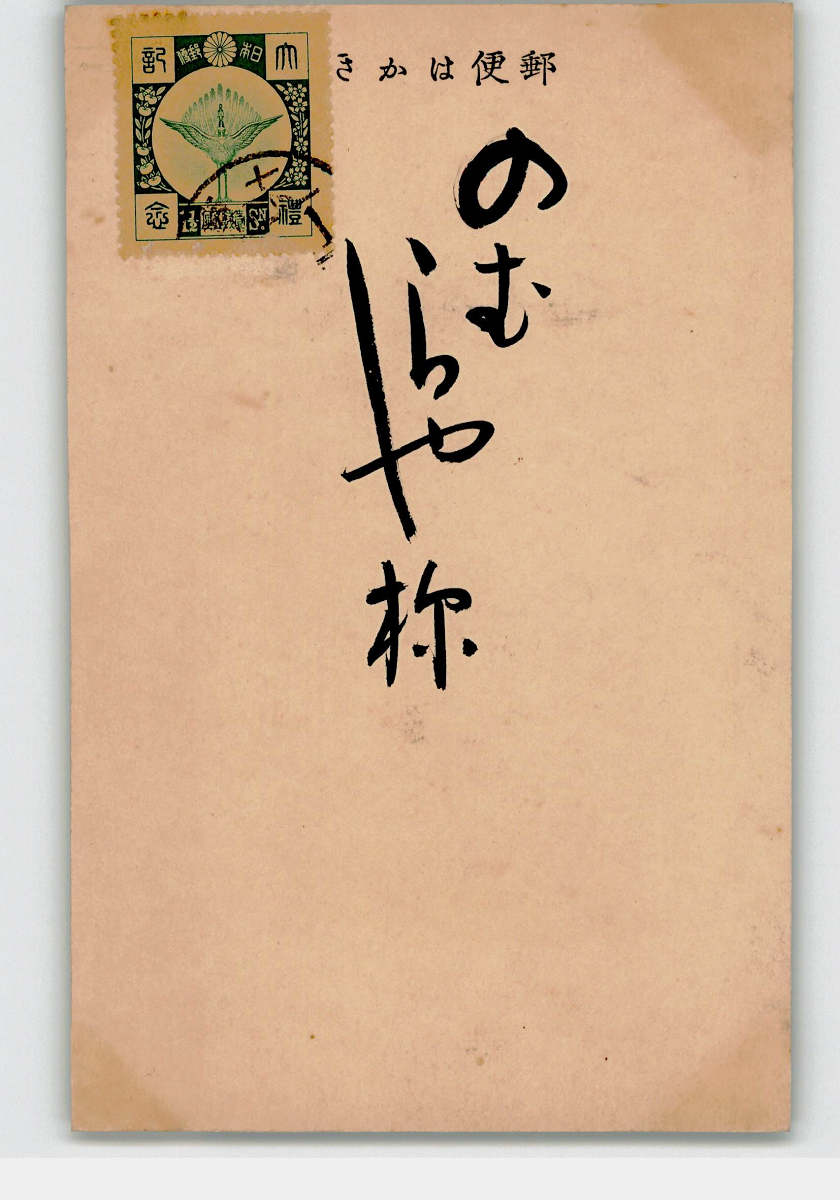 郵便はかき
大日本郵便
大禮記念
1½ SN.
のむらや